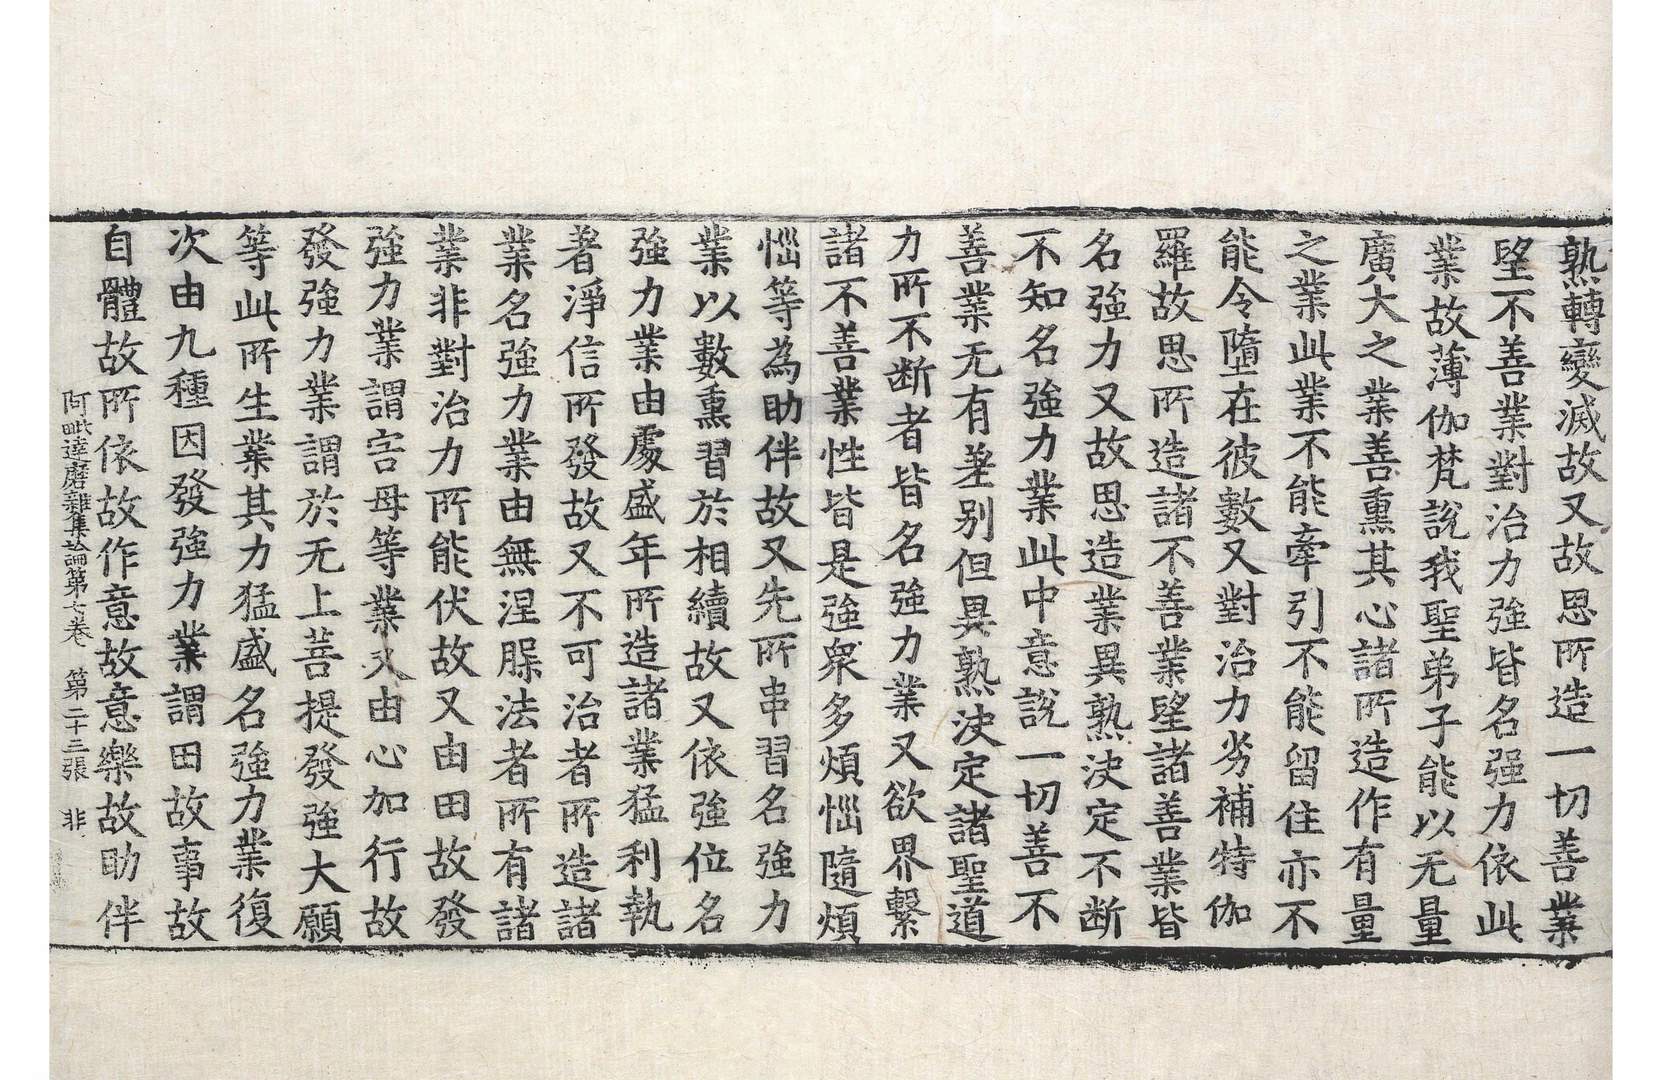 熟轉變滅故又故思所造一切善業
望不善業對治力強皆名强力依此
業故薄伽梵說我聖弟子能以无量
廣大之業善熏其心諸所造作有量
之業此業不能牽引不能留住亦不
能令墮在彼數又對治力劣補特伽
羅故思所造諸不善業望諸善業皆
名強力又故思造業異熟決定不断
不知名強力業此中意說一切善不
善業无有差别但異熟決定諸聖道
力所不断者皆名強力業又欲界繫
諸不善業性皆是強衆多煩惱隨煩
惱等為助伴故又先所串習名強力
業以數熏習於相續故又依強位名
強力業由處盛年所造諸業猛利執
著淨信所發故又不可治者所造諸
業名強力業由無涅槃法者所有諸
業非對治力所能伏故又由田故發
強力業謂害母等業又由心加行故
發強力業謂於无上菩提發強大願
等此所生業其力猛盛名強力業復
次由九種因發強力業謂田故事故
自體故所依故作意故意樂故助伴
阿毗達磨雜集論第七卷 第二十三張 非